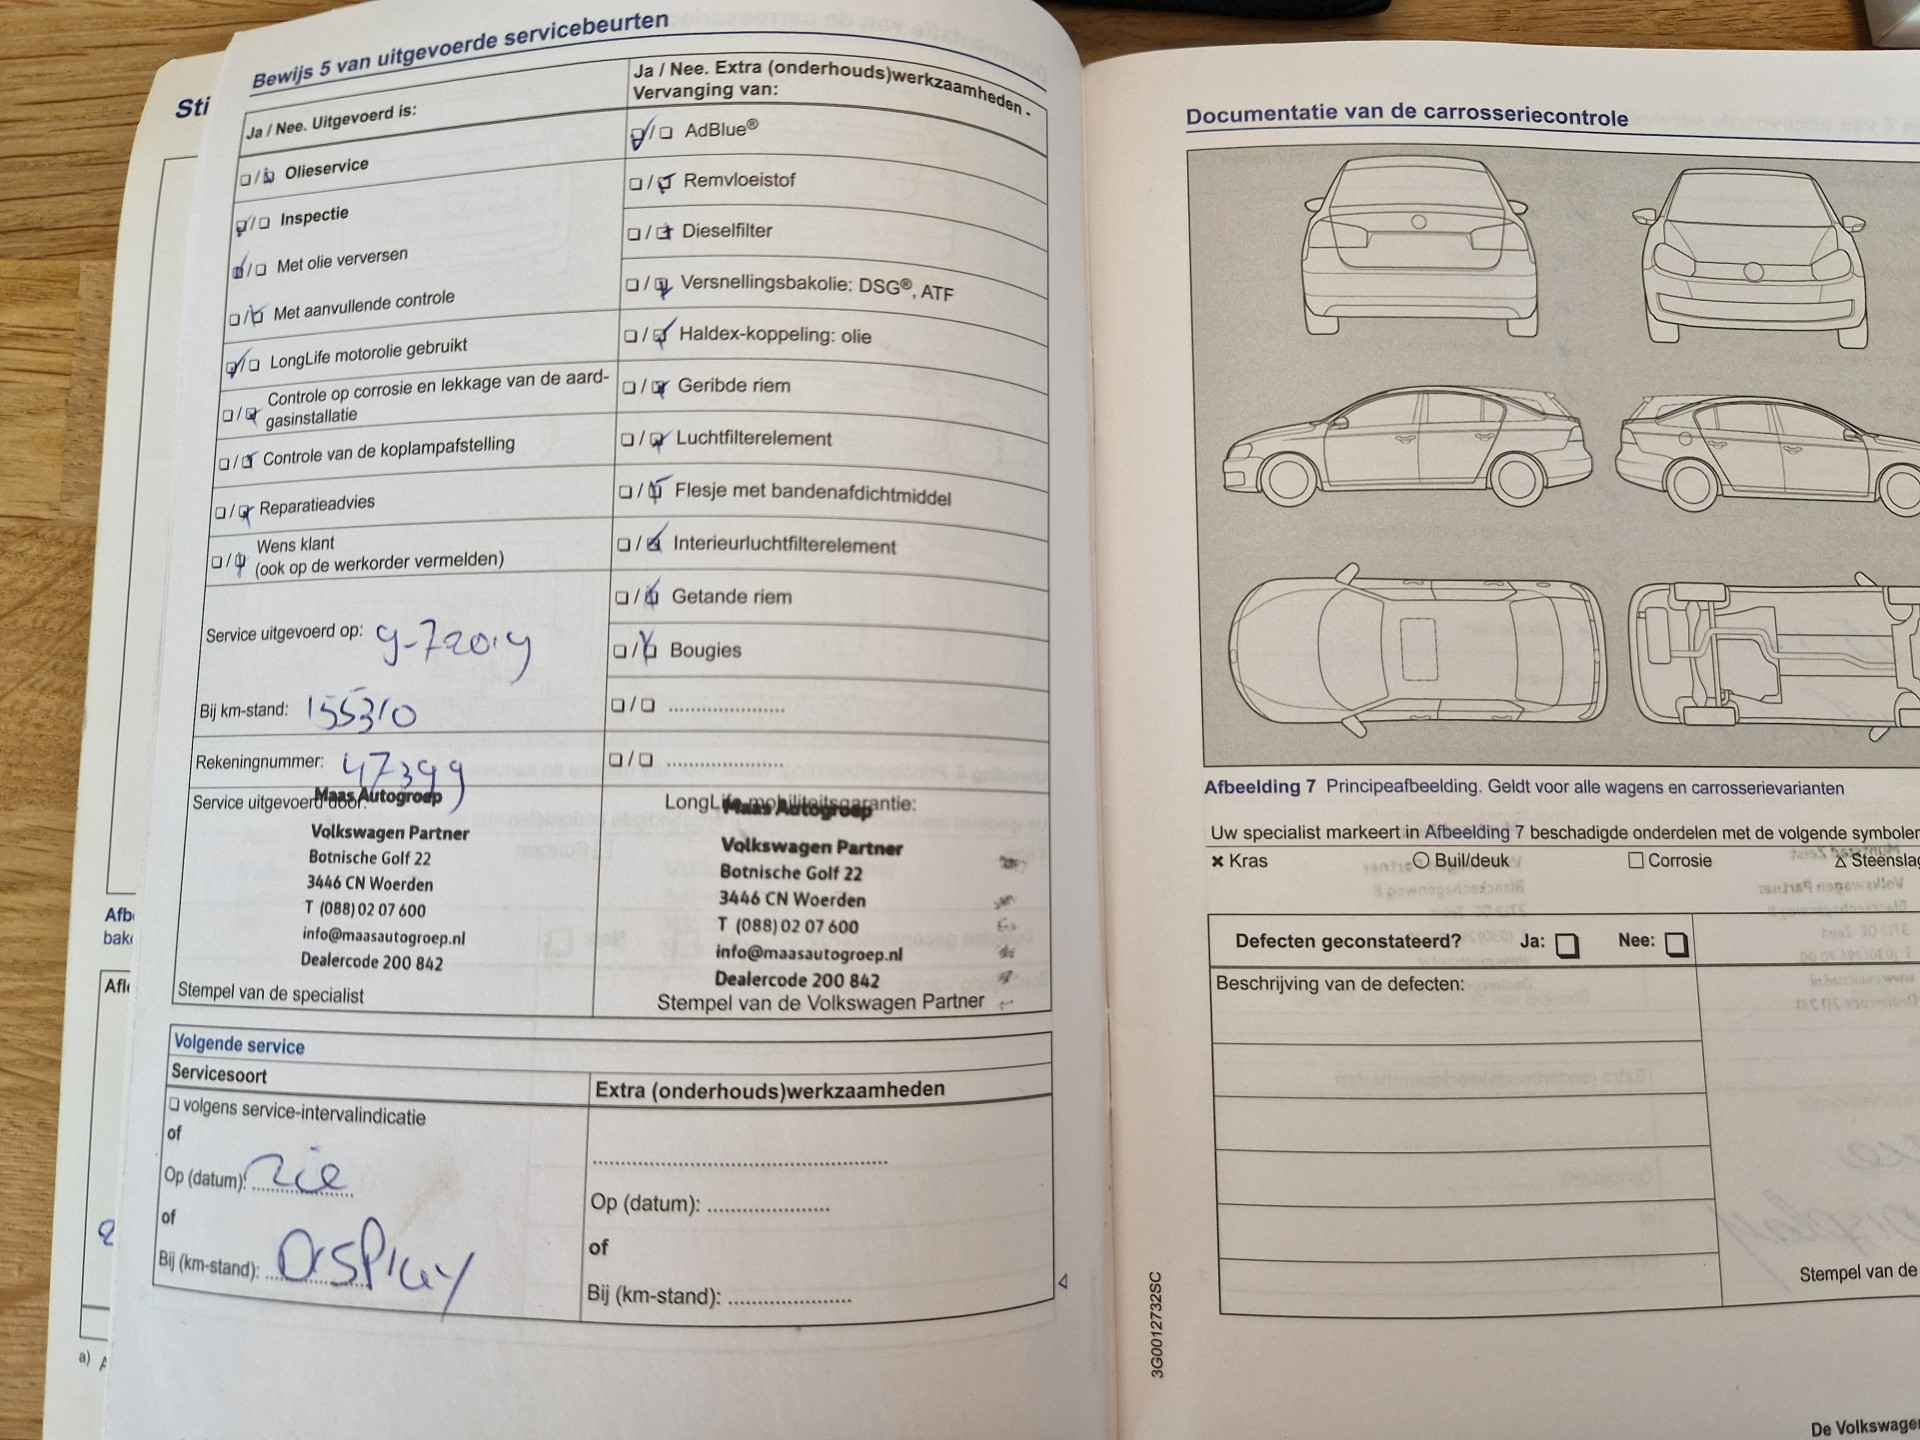 Sti
Bewijs 5 van uitgevoerde servicebeurten
Ja / Nee. Uitgevoerd is:
Olieservice
Inspectie
Met olie verversen
Met aanvullende controle
LongLife motorolie gebruikt
Controle op corrosie en lekkage van de aard-
gasinstallatie
Controle van de koplampafstelling
Reparatieadvies
Wens klant
(ook op de werkorder vermelden)
Service uitgevoerd op: 9-7 2019
Bij km-stand: 155310
Rekeningnummer: 47399
Service uitgevoerd door:
Maas Autogroep
Volkswagen Partner
Botnische Golf 22
3446 CN Woerden
T (088) 02 07 600
info@maasautogroep.nl
Dealercode 200 842
Stempel van de specialist
Ja / Nee. Extra (onderhouds)werkzaamheden -
Vervanging van:
AdBlue®
Remvloeistof
Dieselfilter
Versnellingsbakolie: DSG®, ATF
Haldex-koppeling: olie
Geribde riem
Luchtfilterelement
Flesje met bandenafdichtmiddel
Interieurluchtfilterelement
Getande riem
Bougies
LongLife mobiliteitsgarantie:
Maas Autogroep
Volkswagen Partner
Botnische Golf 22
3446 CN Woerden
T (088) 02 07 600
info@maasautogroep.nl
Dealercode 200 842
Stempel van de Volkswagen Partner
Volgende service
Servicesoort
volgens service-intervalindicatie
of
Op (datum): zie
of
Bij (km-stand): DISPLAY
Extra (onderhouds)werkzaamheden
Op (datum):
of
Bij (km-stand):
Afb
bak
Afl
a) A
Documentatie van de carrosseriecontrole
Afbeelding 7 Principeafbeelding. Geldt voor alle wagens en carrosserievarianten
Uw specialist markeert in Afbeelding 7 beschadigde onderdelen met de volgende symbolen
Kras Buil/deuk Corrosie Steenslag
Defecten geconstateerd? Ja: Nee:
Beschrijving van de defecten:
Stempel van de
3G0012732SC
De Volkswagen